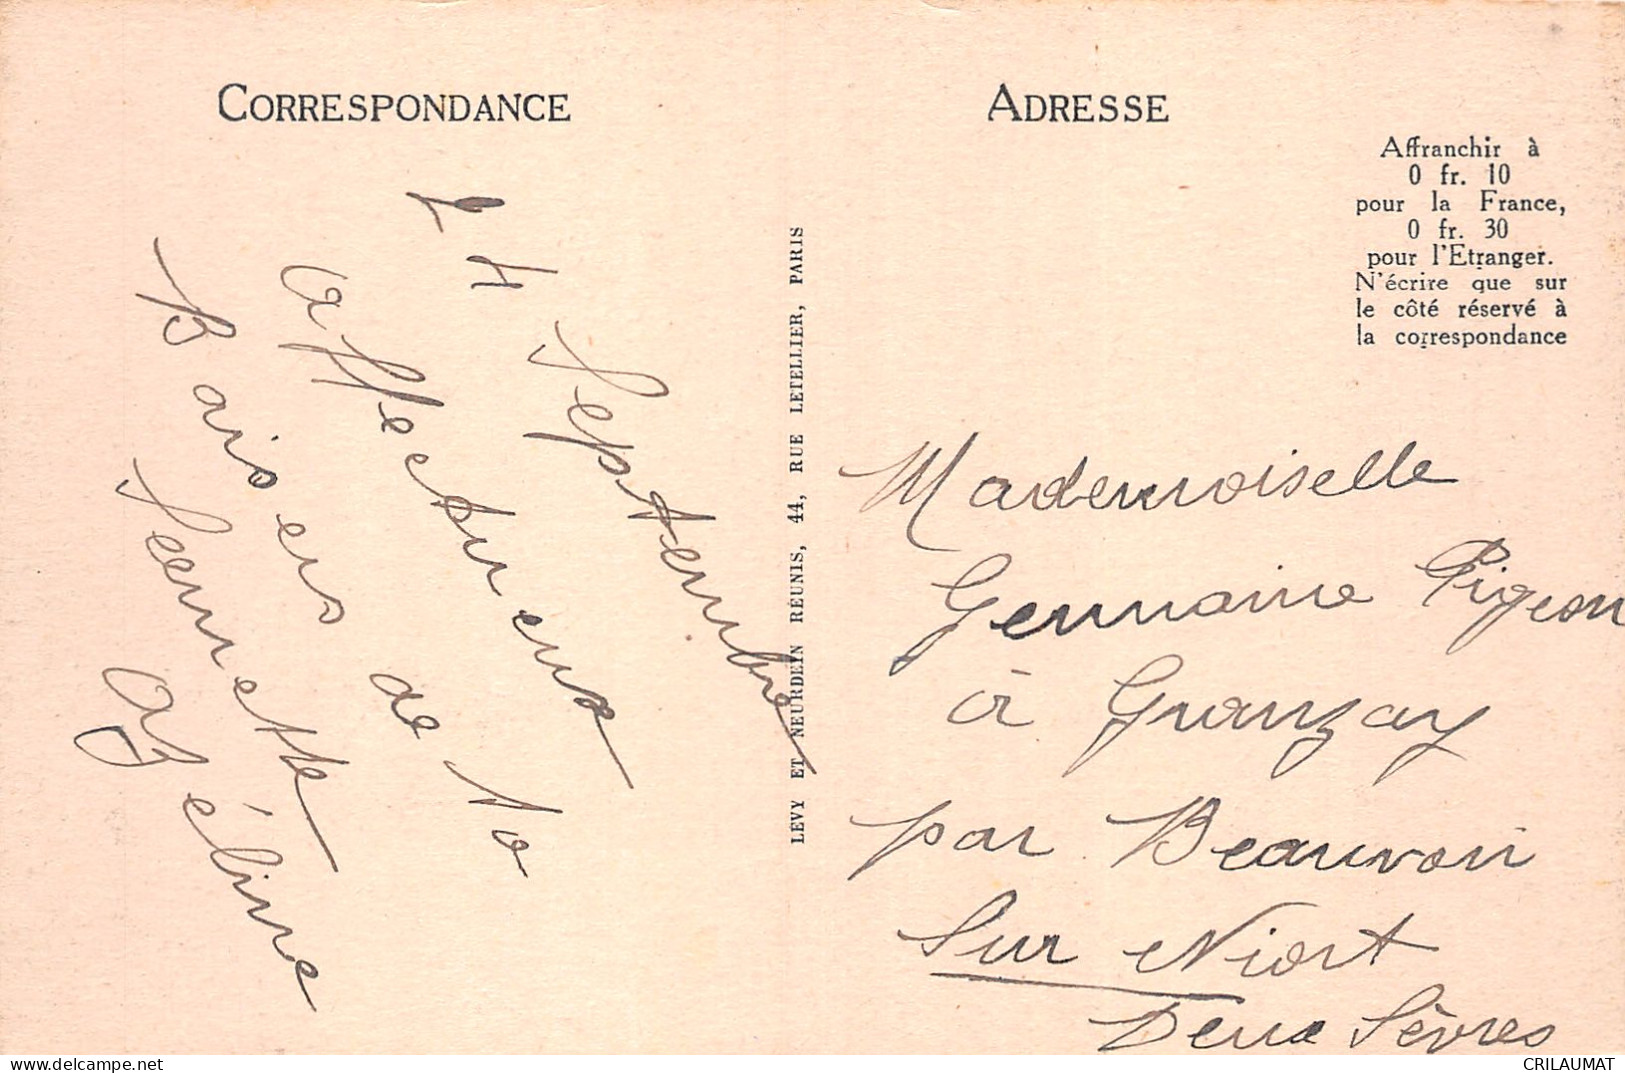 CORRESPONDANCE
14 Septembre
affectueux
Baisers de to
Azéline
LEVY ET NEURDEIN REUNIS, 44, RUE LETELLIER, PARIS
ADRESSE
Affranchir à
0 fr. 10
pour la France,
0 fr. 30
pour l'Etranger.
N'écrire que sur
le côté réservé à
la correspondance
Mademoiselle
Germaine Pigeon
à Granzay
par Beauvoir
Sur Niort
Deux Sèvres
CRILAUMAT